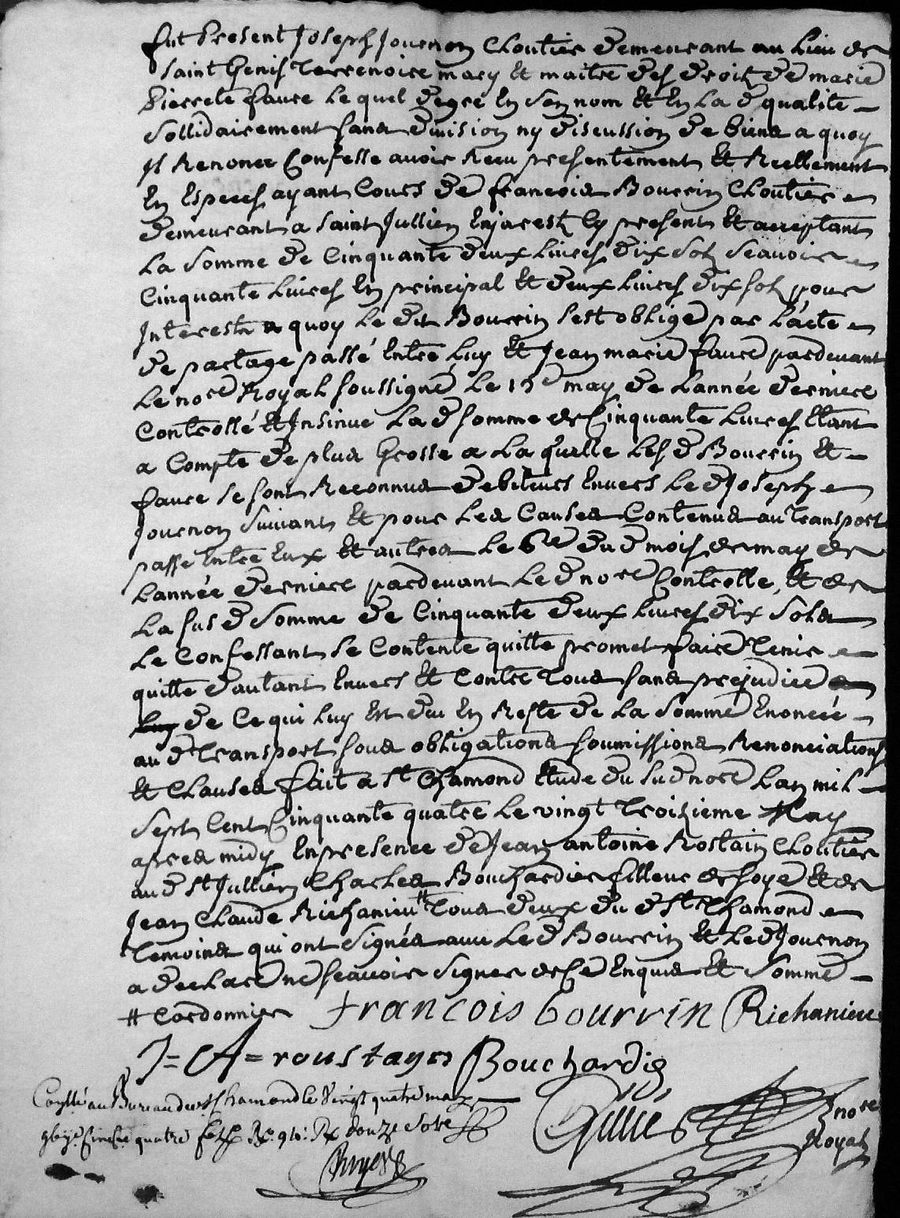 fut present Joseph Journon Cloutier demeurant au Lieu de
saint Genis Terrenoire mary et maitre des droits de marie
Pierrete faure Lequel de gré En son nom Et En La d qualité
Sollidairement sans division ny discussion de biens a quoy
Il Renonce Confesse avoir Receu presentement Et Reellement
En Especes ayant Cours de francois Bourrin Cloutier
demeurant a saint Jullien Enjarest Cy present Et acceptant
La somme de Cinquante deux Livres dix sols Scavoir
Cinquante Livres En principal Et deux Livres dix sols pour
Interests a quoy Le dit Bourrin sest obligé par Lacte
de partage passé Entre Luy Et Jean marie faure pardevant
Le nore Royal soussigné Le may de Lannée derniere
Controllé Et Insinué La d somme de Cinquante Livres Etant
a Compte de plus Grosse a La quelle Les d Bourrin Et
faure se sont Reconnus debiteurs Envers Le d Joseph
Journon Suivant Et pour Les Causes Contenus au transport
passé Entre Eux Et autres Le 6e du d mois de may de
Lannée derniere pardevant Le d nore Controllé, Et de
La sus d Somme de Cinquante deux Livres dix sols
Le Confessant se Contente quitte promet faire tenir
quitte d'autant Envers Et Contre tous sans prejudice
de Ce qui Luy Est deu En Reste de La somme Enoncée
au d transport sous obligations soumissions Renonciations
Et Clauses fait a st Chamond Etude du sud nore Lan mil
sept Cent Cinquante quatre Le vingt troisieme May
apres midy En presence de Jean antoine Rostain Cloutier
au d st Jullien Charles Bouchardier filleur de soye Et de
Jean Claude Richanieu # tous deux du d st Chamond
temoins qui ont signés avec Le d Bourrin Et Le d Journon
a declaré ne scavoir signer de ce Enquis Et Sommé
# Cordonnier francois bourrin Richanieu
J = A = roustayn Bouchardie
Conllé au Bureau de st Chamond le Vingt quatre may
Cinqte quatre douze sols
Gillié nore
Royal